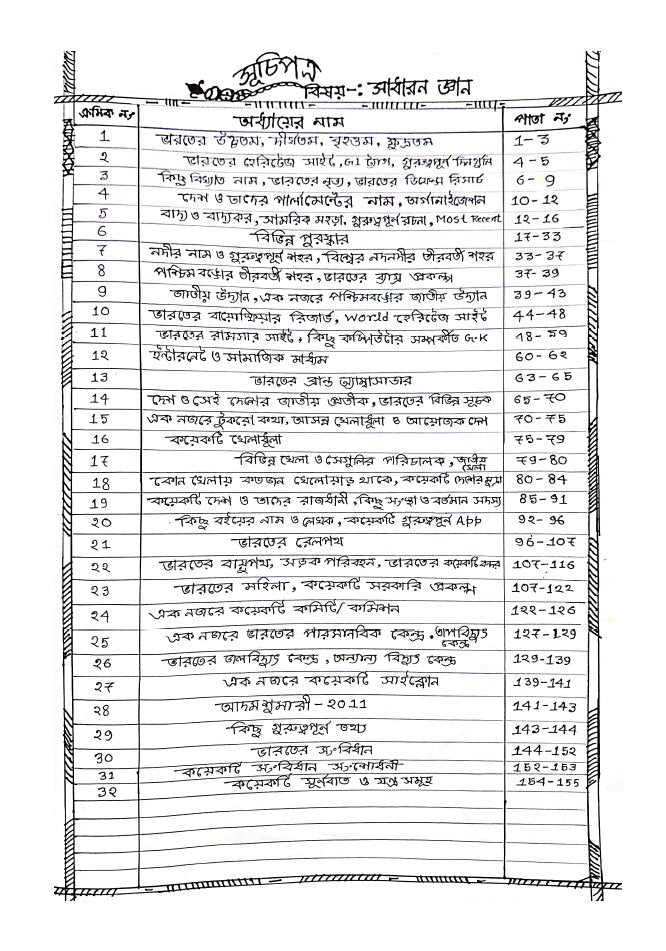 সূচিপত্র
বিষয়-: সাধারন জ্ঞান
ক্রমিক নং অধ্যায়ের নাম পাতা নং
1 ভারতের উচ্চতম, দীর্ঘতম, বৃহত্তম, ক্ষুদ্রতম 1-3
2 ভারতের হেরিটেজ সাইট, GI ট্যাগ, গুরুত্বপূর্ণ 4-5
3 কিছু বিখ্যাত নাম, ভারতের নৃত্য, ভারতের ডিফেন্স রিসার্চ 6-9
4 দেশ ও তাদের পার্লামেন্টের নাম, অর্গানাইজেশন 10-12
5 বাদ্য ও বাদ্যকর, সামরিক মহড়া, গুরুত্বপূর্ণ রচনা, Most Recent 12-16
6 বিভিন্ন পুরস্কার 17-33
7 নদীর নাম ও গুরুত্বপূর্ণ শহর, বিশ্বের নদনদীর তীরবর্তী শহর 33-37
8 পশ্চিমবঙ্গের তীরবর্তী শহর, ভারতের ব্যাঘ্র প্রকল্প 37-39
9 জাতীয় উদ্যান, এক নজরে পশ্চিমবঙ্গের জাতীয় উদ্যান 39-43
10 ভারতের বায়োস্ফিয়ার রিজার্ভ, World হেরিটেজ সাইট 44-48
11 ভারতের রামসার সাইট, কিছু কম্পিউটার সম্পর্কীত G.K 48-59
12 ইন্টারনেট ও সামাজিক মাধ্যম 60-62
13 ভারতের ব্রান্ড অ্যাম্বাসাডার 63-65
14 দেশ ও সেই দেশের জাতীয় প্রতীক, ভারতের বিভিন্ন সূচক 65-70
15 এক নজরে টুকরো কথা, আসন্ন খেলাধূলা ও আয়োজক দেশ 70-75
16 কয়েকটি খেলাধূলা 75-79
17 বিভিন্ন খেলা ও সেগুলির পরিচালক, জাতীয় খেলা 79-80
18 কোন খেলায় কতজন খেলোয়াড় থাকে, কয়েকটি দেশের মুদ্রা 80-84
19 কয়েকটি দেশ ও তাদের রাজধানী, কিছু সংস্থা ও বর্তমান সদস্য 85-91
20 কিছু বইয়ের নাম ও লেখক, কয়েকটি গুরুত্বপূর্ণ App 92-96
21 ভারতের রেলপথ 96-107
22 ভারতের বায়ুপথ, সড়ক পরিবহন, ভারতের কয়েকটি বন্দর 107-116
23 ভারতের মহিলা, কয়েকটি সরকারি প্রকল্প 107-122
24 এক নজরে কয়েকটি কমিটি/কমিশন 122-126
25 এক নজরে ভারতের পারমানবিক কেন্দ্র, তাপবিদ্যুৎ কেন্দ্র 127-129
26 ভারতের জলবিদ্যুৎ কেন্দ্র, অন্যান্য বিদ্যুৎ কেন্দ্র 129-139
27 এক নজরে কয়েকটি সাইক্লোন 139-141
28 আদমশুমারী - 2011 141-143
29 কিছু গুরুত্বপূর্ণ তথ্য 143-144
30 ভারতের সংবিধান 144-152
31 কয়েকটি সংবিধান সংশোধনী 152-153
32 কয়েকটি সূত্রপাত ও যন্ত্র সমূহ 154-155